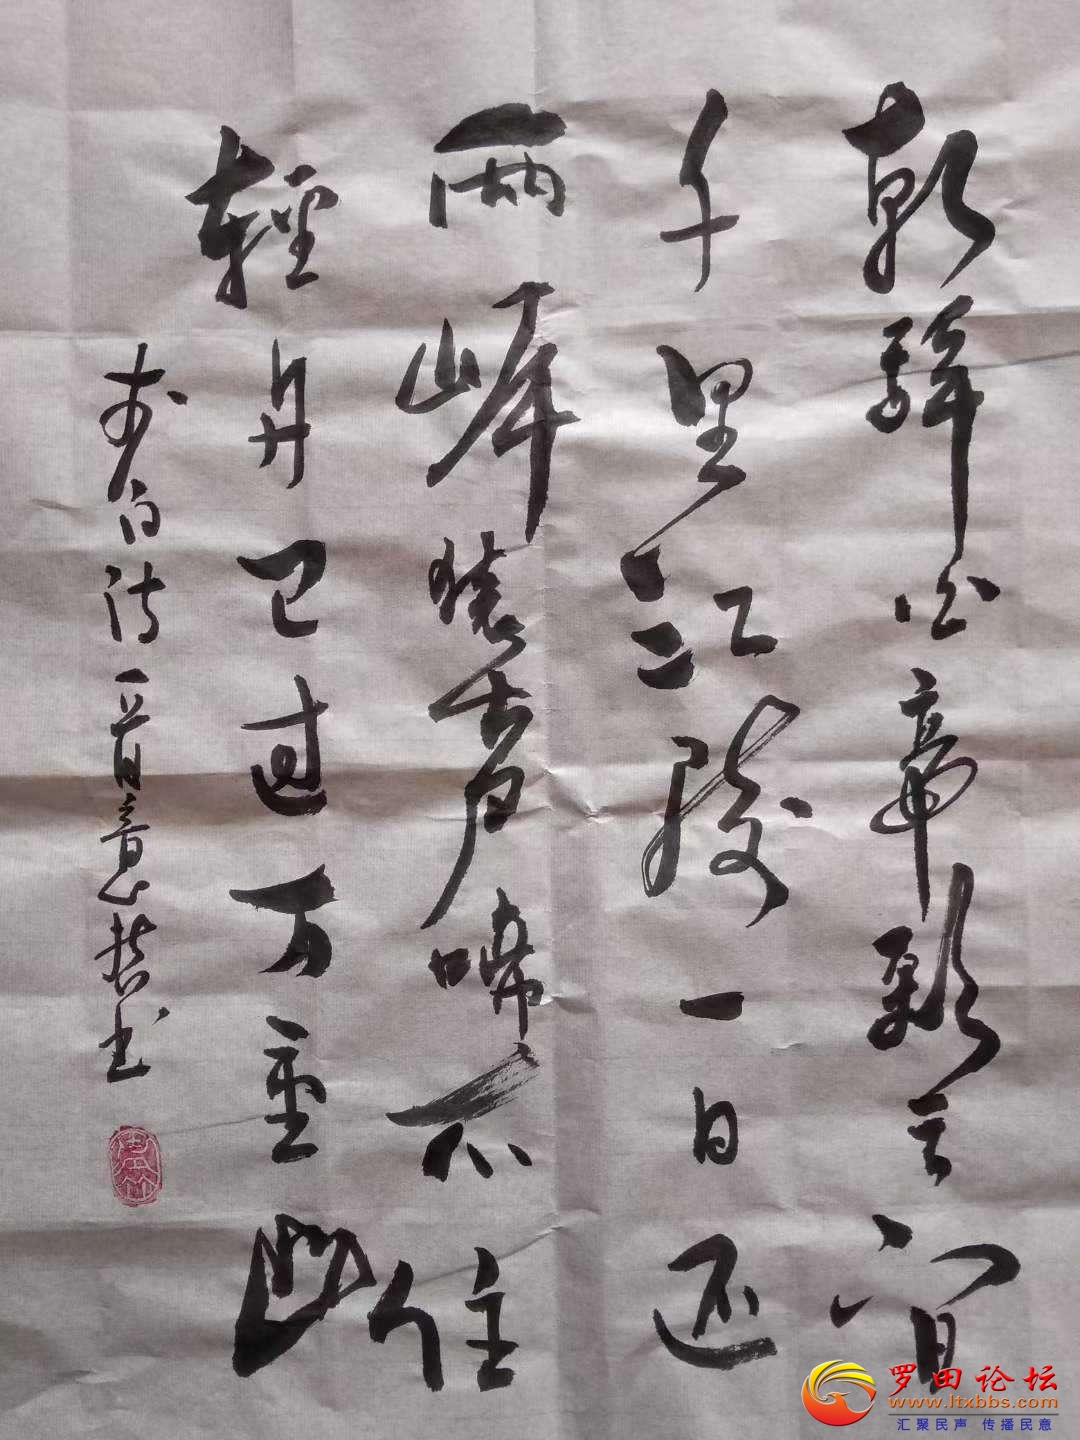 朝辞白帝彩云间
千里江陵一日还
兩岸猿声啼不住
輕舟已过万重山
李白诗一首意书
罗田论坛
www.ltxbbs.com
汇聚民声 传播民意